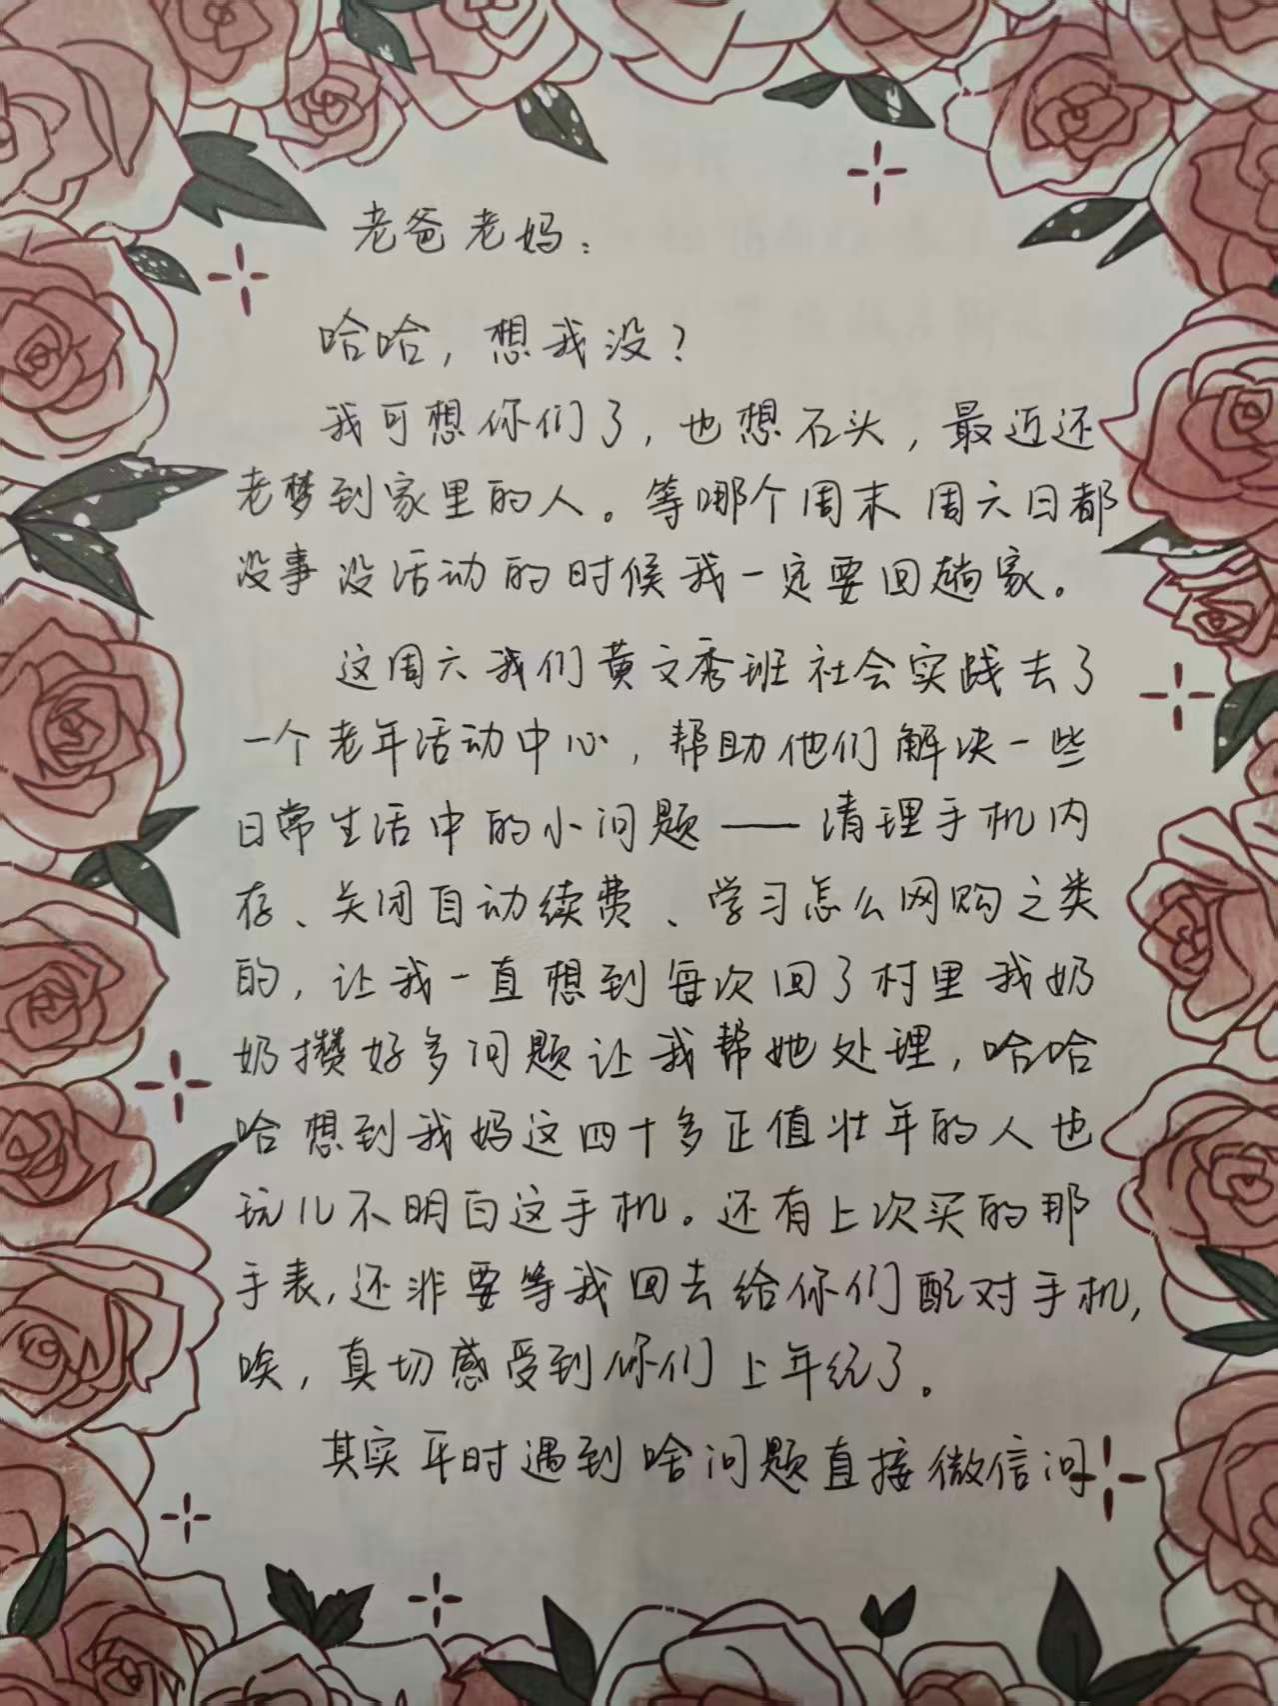 老爸老妈：
哈哈，想我没？
我可想你们了，也想石头，最近还
老梦到家里的人。等哪个周末 周六日都
没事没活动的时候我一定要回趟家。
这周六我们黄文秀班社会实践去了
一个老年活动中心，帮助他们解决一些
日常生活中的小问题——清理手机内
存、关闭自动续费、学习怎么网购之类
的，让我一直想到每次回了村里我奶
奶攒好多问题让我帮她处理，哈哈
哈想到我妈这四十多正值壮年的人也
玩儿不明白这手机。还有上次买的那
手表，还非要等我回去给你们配对手机，
唉，真切感受到你们上年纪了。
其实平时遇到啥问题直接微信问